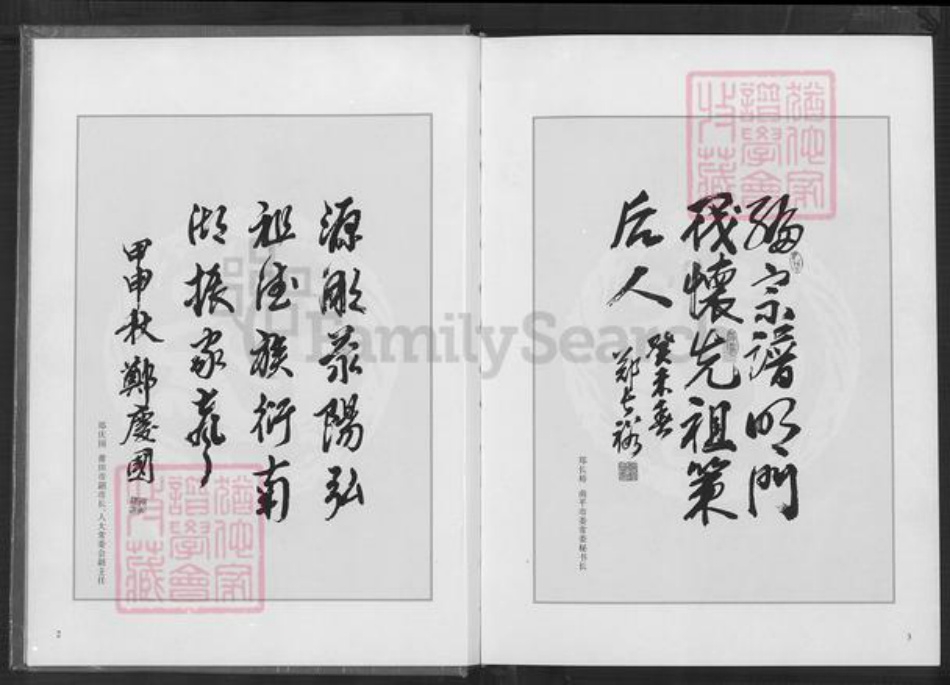 编宗谱明門
茂懷先祖策
后人
癸未春
郑长裕
郑长裕 南平市委常委秘书长
3
源溯荥陽弘
祖德族衍南
湖振家聲
甲申秋 鄭慶國
郑庆国 莆田市副市长、人大常委会副主任
2
猶他家
譜學會
收藏
猶他家
譜學會
收藏
FamilySearch